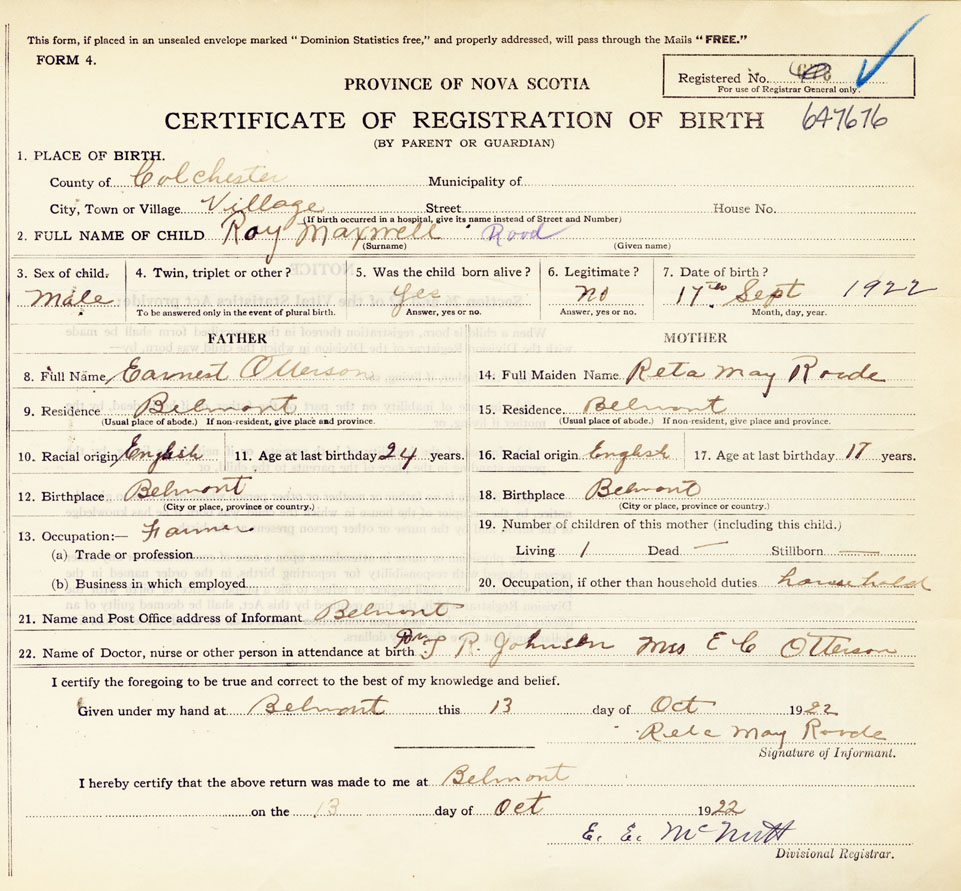 This form, if placed in an unsealed envelope marked "Dominion Statistics free," and properly addressed, will pass through the Mails "FREE."
FORM 4.
Registered No.
For use of Registrar General only.
PROVINCE OF NOVA SCOTIA
647676
CERTIFICATE OF REGISTRATION OF BIRTH
(BY PARENT OR GUARDIAN)
1. PLACE OF BIRTH.
County of Colchester Municipality of
City, Town or Village Village Street House No.
(If birth occurred in a hospital, give its name instead of Street and Number)
2. FULL NAME OF CHILD Roy Maxwell Rood
(Surname) (Given name)
3. Sex of child. 4. Twin, triplet or other? 5. Was the child born alive? 6. Legitimate? 7. Date of birth?
Male Yes no 17th Sept 1922
To be answered only in the event of plural birth. Answer, yes or no. Answer, yes or no. Month, day, year.
FATHER MOTHER
8. Full Name Earnest Otterson 14. Full Maiden Name Reta May Roode
9. Residence Belmont 15. Residence Belmont
(Usual place of abode.) If non-resident, give place and province. (Usual place of abode.) If non-resident, give place and province.
10. Racial origin English 11. Age at last birthday 24 years. 16. Racial origin English 17. Age at last birthday 17 years.
12. Birthplace Belmont 18. Birthplace Belmont
(City or place, province or country.) (City or place, province or country.)
13. Occupation:— Farmer 19. Number of children of this mother (including this child.)
(a) Trade or profession Living 1 Dead — Stillborn —
(b) Business in which employed 20. Occupation, if other than household duties household
21. Name and Post Office address of Informant Belmont
22. Name of Doctor, nurse or other person in attendance at birth Dr T R. Johnson Mrs E C Otterson
I certify the foregoing to be true and correct to the best of my knowledge and belief.
Given under my hand at Belmont this 13 day of Oct 1922
Reta May Roode
Signature of Informant.
I hereby certify that the above return was made to me at Belmont
on the 13 day of Oct 1922
E. E. McNutt
Divisional Registrar.